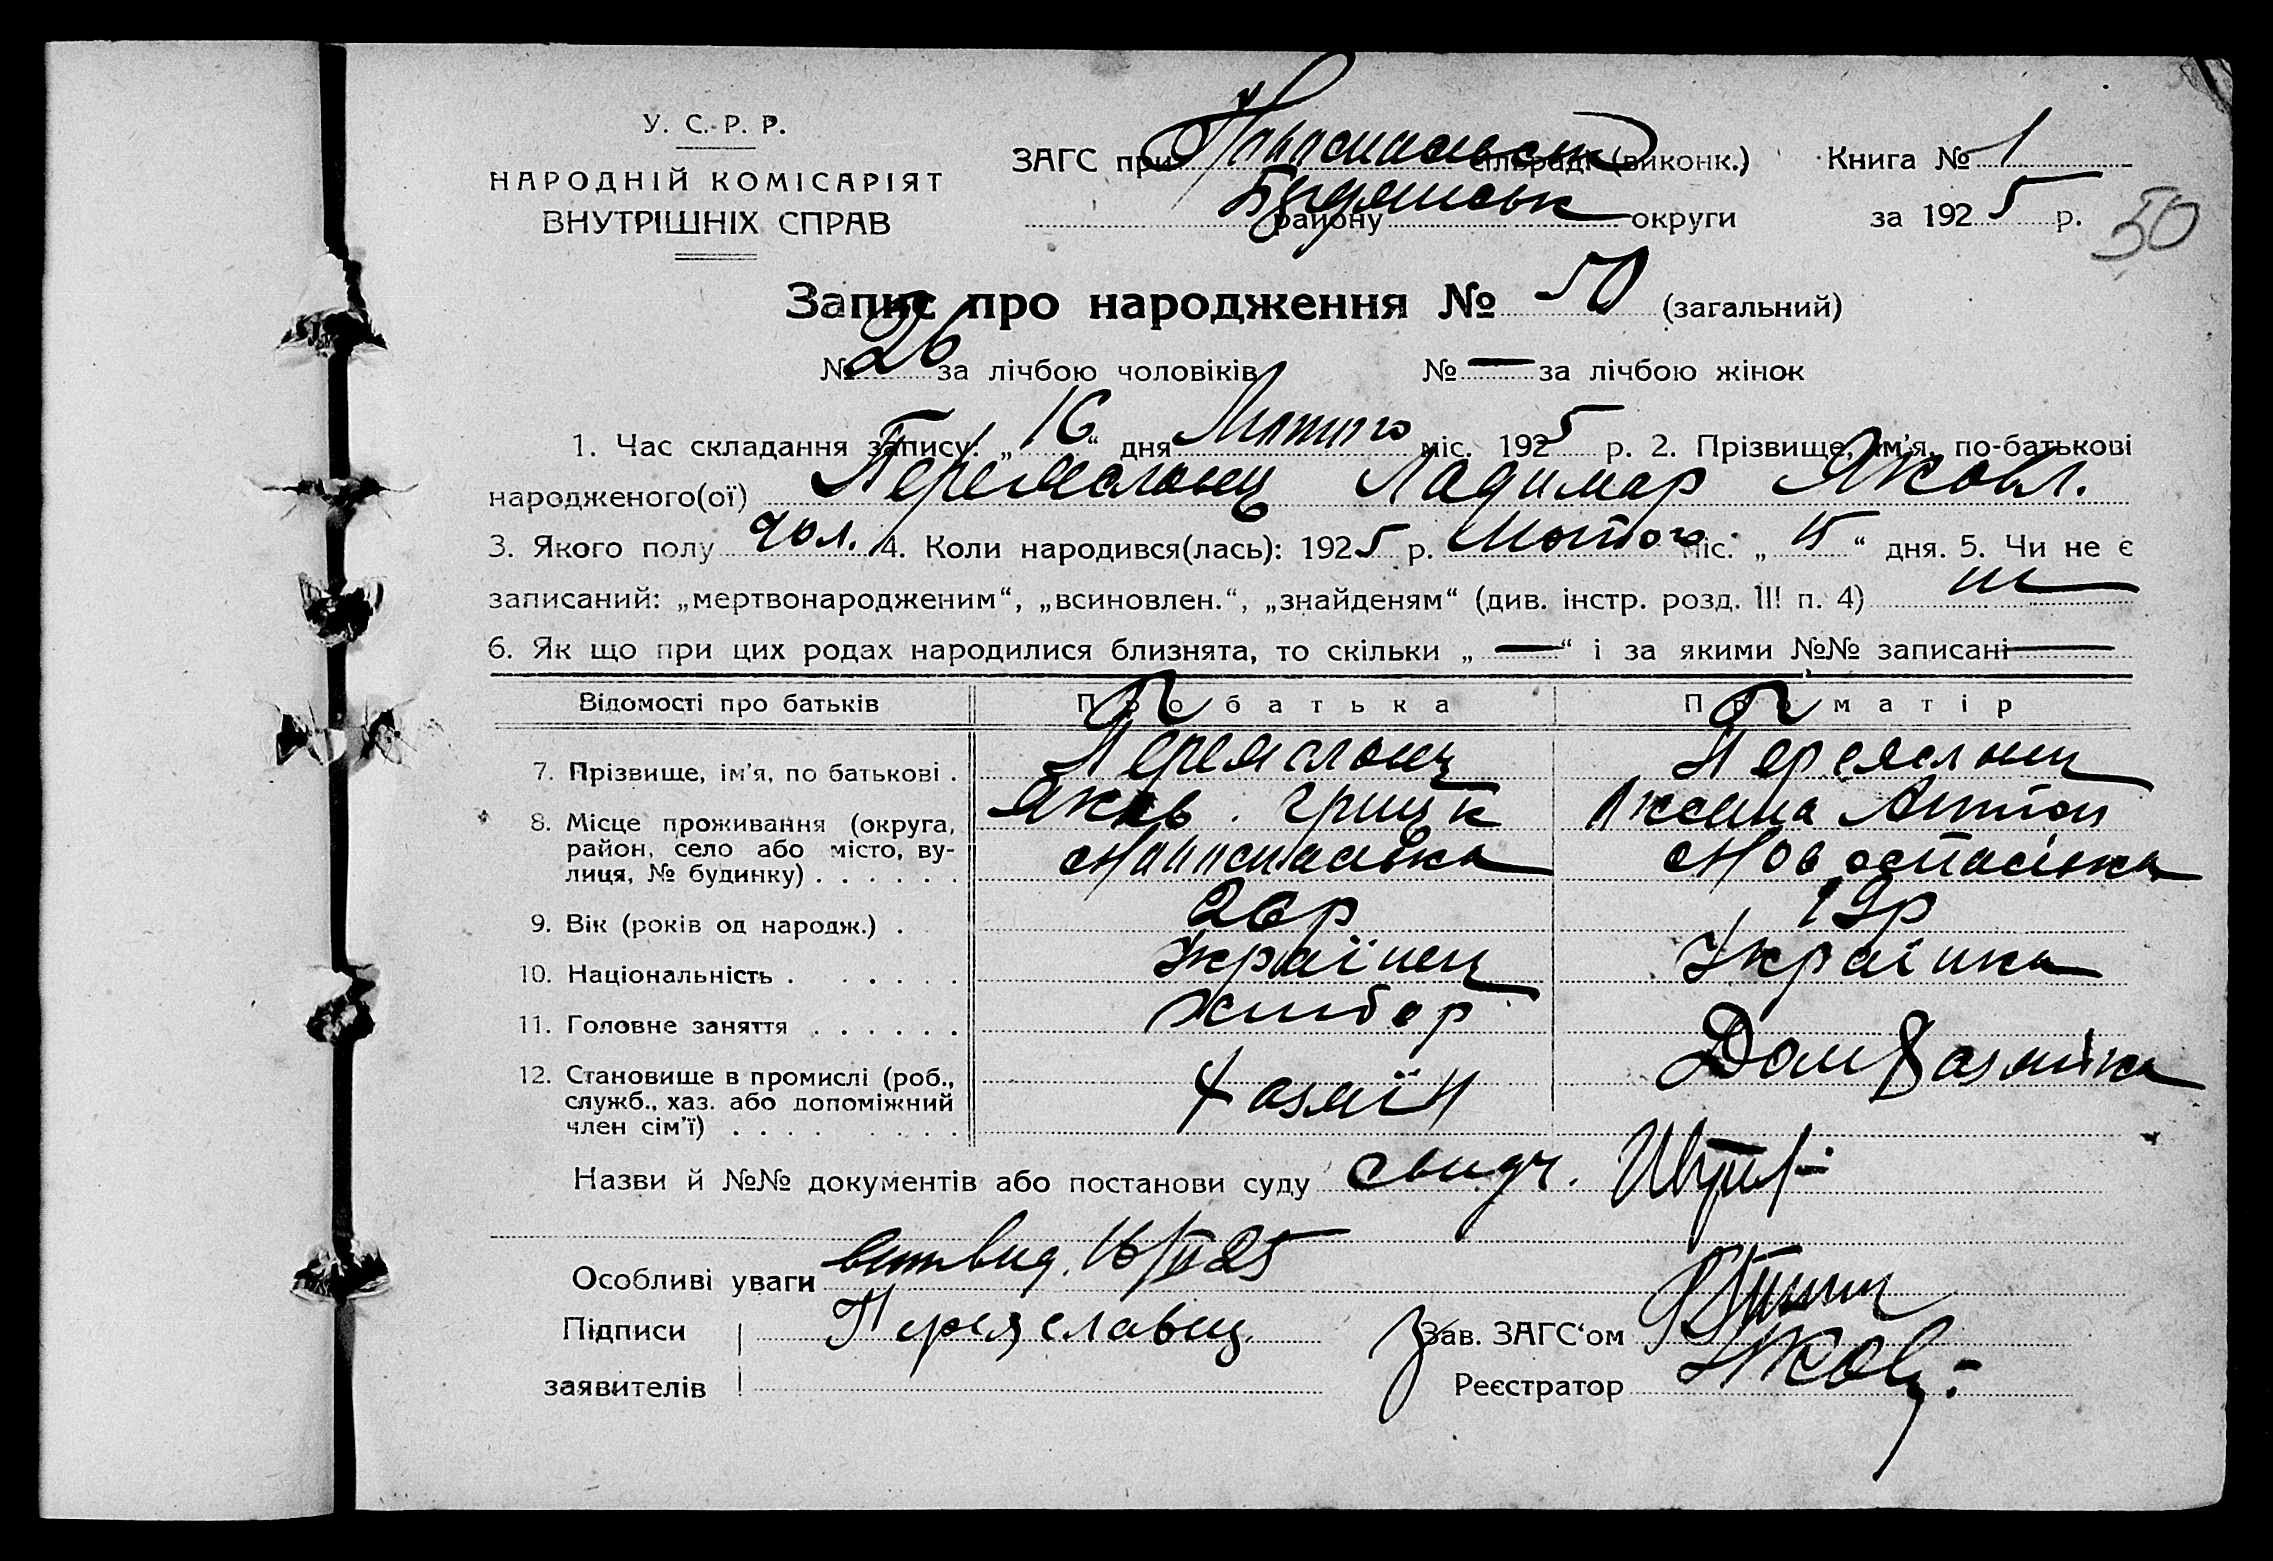 У. С. Р. Р.
НАРОДНІЙ КОМІСАРІЯТ
ВНУТРІШНІХ СПРАВ
ЗАГС при сільраді (виконк.)
району округи
Книга № 1
за 1925 р.
50
Запис про народження № 50 (загальний)
№ 26 за лічбою чоловіків № — за лічбою жінок
1. Час складання запису: „16“ дня Лютого міс. 1925 р. 2. Прізвище, ім'я, по-батькові
народженого(ої) Ладимар Яковл.
3. Якого полу чол. 4. Коли народився(лась): 1925 р. Лютого міс. „15“ дня. 5. Чи не є
записаний: „мертвонародженим“, „всиновлен.“, „знайденям“ (див. інстр. розд. III п. 4) ні
6. Як що при цих родах народилися близнята, то скільки „—“ і за якими №№ записані —
Відомості про батьків Про батька Про матір
7. Прізвище, ім'я, по батькові .
Яков
8. Місце проживання (округа,
район, село або місто, ву-
лиця, № будинку) . . . . . .
Новоспасівка
9. Вік (років од народж.) . 26р 19р
10. Національність . . . . . . Українец Українка
11. Головне заняття . . . . . . Хлибор
12. Становище в промислі (роб.,
служб., хаз. або допоміжний
член сім'ї) . . . . . . . .
Хазяїн
Назви й №№ документів або постанови суду свидч.
Особливі уваги 16/II 25
Підписи Переяславец Зав. ЗАГС'ом
заявителів Реєстратор